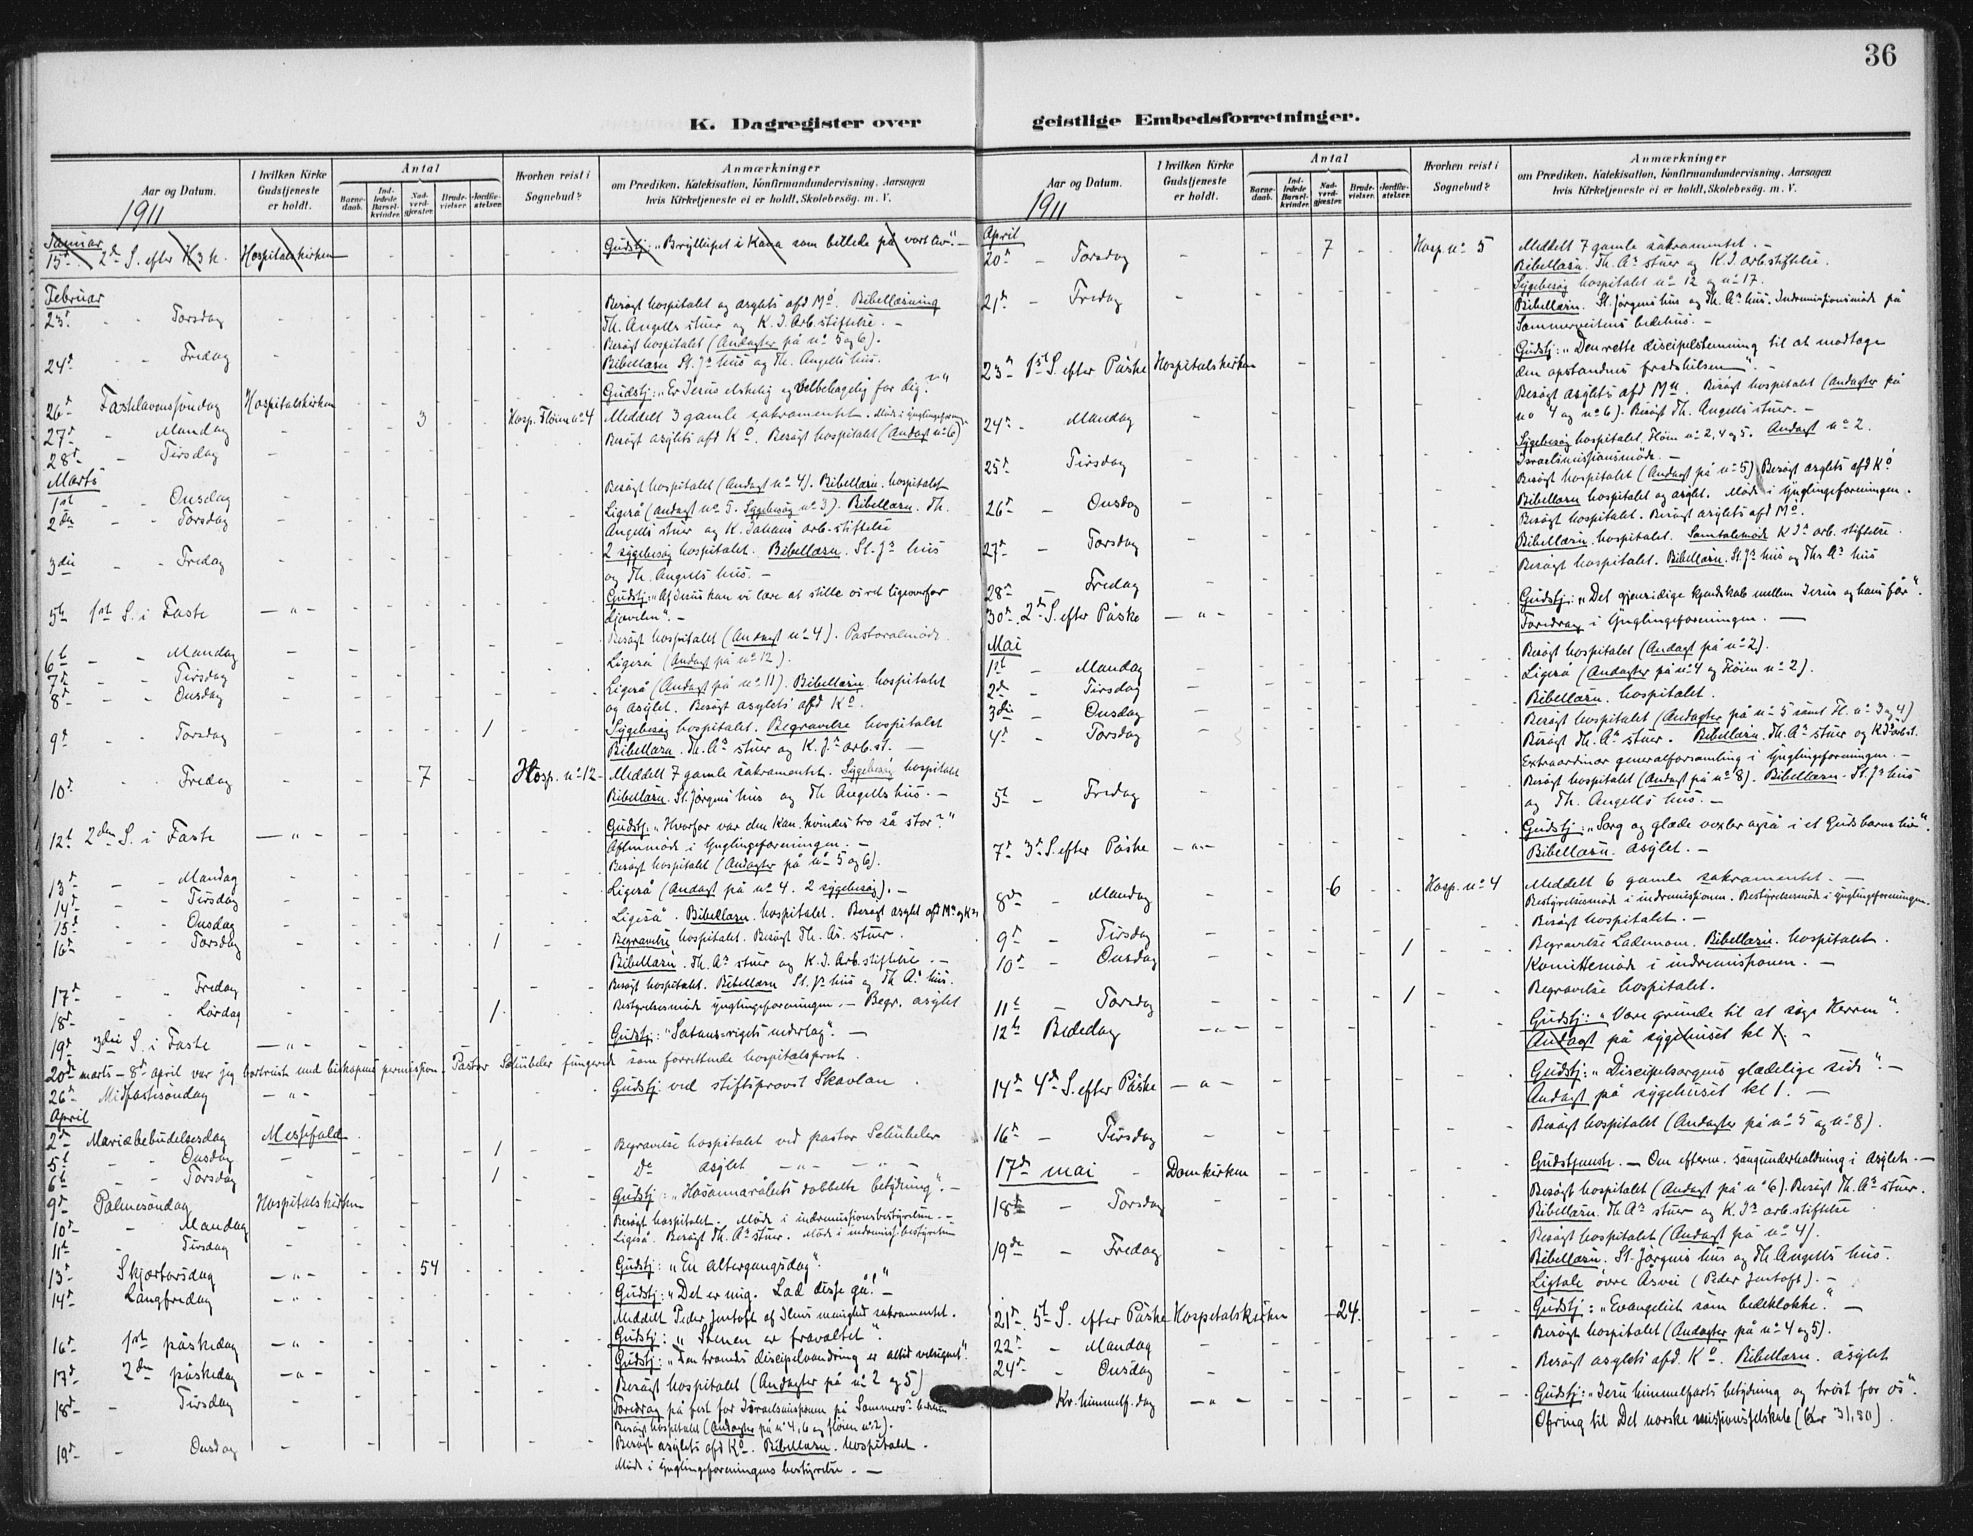 36
K. Dagregister over
geistlige Embedsforretninger.
Aar og Datum.
I hvilken Kirke Gudstjeneste er holdt.
Antal
Barnedaab.
Indledede Barselkvinder.
Nadverdgjæster.
Brudevielser.
Jordfæstelser.
Hvorhen reist i Sognebud?
Anmærkninger
om Prædiken, Katekisation, Konfirmandundervisning, Aarsagen
hvis Kirketjeneste ei er holdt, Skolebesøg, m. V.
1911
Januar
15d. 2den S. efter H3k. Hospitalskirken Gudstj: "Bryllupet i Kana som billede på vort liv". -
Februar
23d. Torsdag Besøgt hospitalet og asylets afd Mo. Bibellæsning
Th. Angells stuer og K. J. Arb.stiftelse. -
24d. Fredag Besøgt hospitalet (Andagter på no 5 og 6).
Bibellæsn St. Js hus og Th. Angells hus.
26d Fastelavenssøndag Hospitalskirken Gudstj: "Er Jesus elskelig og velbehagelig for dig?"
27d Mandag 3 Hosp. Fløien no 4 Meddelt 3 gamle sakramentet. Møde i Ynglingeforen
28d - Tirsdag Besøgt asylets afd Ko. Besøgt hospitalet (Andagt no 6)
Marts
1st - Onsdag Besøgt hospitalet (Andagt no 4). Bibellæsn. hospitalet
2den - Torsdag Ligeså (Andagt no 5. Sygebesøg no 3). Bibellæsn. Th.
Angells stuer og K. Johans arb.stiftelse
3die - Fredag 2 sygebesøg hospitalet. Bibellæsn. St. Js hus
og Th. Angells hus. -
5te 1st S. i Faste - " - Gudstj: "Af Jesus kan vi lære at stille os ret ligeoverfor
djævelen". -
6te - Mandag Besøgt hospitalet (Andagt no 4). Pastoralmøde.
7de - Tirsdag Ligeså (Andagt på no 12).
8de - Onsdag Ligeså (Andagt på no 11). Bibellæsn. hospitalet
og asylet. Besøgt asylets afd Ko.
9d - Torsdag 1 Sygebesøg hospitalet. Begravelse hospitalet
Bibellæsn. Th. As stuer og K. Js arb.st. -
10d - Fredag 7 Hosp. no 12 - Meddelt 7 gamle sakramentet. Sygebesøg hospitalet
Bibellæsn. St. Jørgens hus og Th Angells hus. -
12t 2den S. i Faste - " - Gudstj. "Hvorfor var den kan. kvindes tro så stor?"
Aftenmøde i Ynglingeforeningen. -
13d - Mandag Besøgt hospitalet (Andagter på no 5 og 6).
14d - Tirsdag Ligeså (Andagt på no 4. 2 sygebesøg). -
15d - Onsdag Ligeså. Bibellæsn. hospitalet. Besøgt asylet afd Mo og Ko
16d - Torsdag 1 Begravelse hospitalet. Besøgt Th. As. stuer.
Bibellæsn. Th. As stuer og K. J. Arb.stiftelse. -
17d - Fredag Besøgt hospitalet. Bibellæsn St. Js hus og Th. As hus.
18d - Lørdag 1 Bestyrelsesmøde Ynglingeforeningen. - Begr. asylet
19d 3die S. i Faste - " - Gudstj: "Satansrigets nederlag". -
20de marts - 8d april var jeg bortreist med biskopens permission. Pastor Schübeler fungerede som forrettende hospitalsprest.
26d Midfastesøndag - " - Gudstj ved stiftsprovst Skavlan.
April
2d Mariæbebudelsesdag Messefald
5t - Onsdag 1 Begravelse hospitalet ved pastor Schübeler
6te - Torsdag 1 do asylet - " - - " -
9d Palmesøndag Hospitalskirken Gudstj: "Hosiannaråbets dobbelte betydning". -
10d - Mandag Besøgt hospitalet. Møde i indremissionsbestyrelsen. -
11t - Tirsdag Ligeså. Besøgt Th. As stuer. Møde i indremiss. bestyrelsen
13d Skjærtorsdag - " - 54 Gudstj: "En altergangsdag".
14d Langfredag - " - Gudstj: "Det er mig. Lad disse gå!" -
Meddelt Peder Jentoft af Ilens menighed sakramentet.
16d 1st påskedag - " - Gudstj: "Stenen er fravæltet".
17d 2den påskedag - " - Gudstj: "Den troendes discipelvandring er altid velsignet".
18d - Tirsdag Besøgt hospitalet (Andagter på no 2 og 5)
Foredrag på fest for Israelsmissionen på Sommerv. bedehus
19d - Onsdag Besøgt hospitalet (Andagter på no 4, 6 og fløien no 2).
Besøgt asylets afd Ko. Bibellæsn. hospitalet.
Møde i Ynglingeforeningens bestyrelse. -
Aar og Datum.
I hvilken Kirke Gudstjeneste er holdt.
Antal
Barnedaab.
Indledede Barselkvinder.
Nadverdgjæster.
Brudevielser.
Jordfæstelser.
Hvorhen reist i Sognebud?
Anmærkninger
om Prædiken, Katekisation, Konfirmandundervisning, Aarsagen
hvis Kirketjeneste ei er holdt, Skolebesøg, m. V.
1911
April
20d - Torsdag 7 Hosp. no 5 Meddelt 7 gamle sakramentet. -
Bibellæsn. Th. As stuer og K. J. arb.stiftelse.
21d - Fredag Sygebesøg hospitalet no 12 og no 17.
Bibellæsn. St. Jørgens hus og Th. As hus. Indremissionsmøde på
Sommerveitens bedehus. -
23d 1st S. efter Påske Hospitalskirken Gudstj: "Den rette discipelstemning til at modtage
den opstandnes fredshilsen". -
24d - Mandag Besøgt asylets afd Mo. Besøgt hospitalet (Andagter på
no 4 og no 6). Besøgt Th. Angells stuer. -
25d Tirsdag Sygebesøg hospitalet, Fløien no 2, 4 og 5. Andagt no 2.
Israelsmissionsmøde. -
26d - Onsdag Besøgt hospitalet (Andagt på no 5) Besøgt asylets afd Ko
Bibellæsn hospitalet og asylet. Møde i Ynglingeforeningen.
27d - Torsdag Besøgt hospitalet. Besøgt asylets afd Mo.
Bibellæsn. hospitalet. Samtalemøde K Js arb. stiftelse.
28d - Fredag Besøgt hospitalet. Bibellæsn. St. Js hus og Th. As hus
30d. 2den S. efter Påske - " - Gudstj: "Det gjensidige kjendskab mellem Jesus og hans får".
Foredrag i Ynglingeforeningen. -
Mai
1st - Mandag Besøgt hospitalet (Andagt på no 2).
2d - Tirsdag Ligeså (Andagter på no 4 og Fløien no 2).
3die - Onsdag Bibellæsn. hospitalet.
4d - Torsdag Besøgt hospitalet (Andagter på no 5 samt Fl. no 3 og 4)
Besøgt Th. As stuer. Bibellæsn. Th. As stuer og K Js arb.st.
Extraordinær generalforsamling i Ynglingeforeningen. -
5t - Fredag Besøgt hospitalet (Andagt på no 8). Bibellæsn. St. Js hus
og Th. Angells hus. -
7d 3d S. efter Påske - " - Gudstj: "Sorg og glæde vexler også i et Gudsbarns liv".
Bibellæsn. asylet. -
8de - Mandag 6 Hosp. no 4 Meddelt 6 gamle sakramentet. -
Bestyrelsesmøde i indremissionen. Bestyrelsesmøde i Ynglingeforeningen.
9d - Tirsdag Besøgt hospitalet. -
10d - Onsdag 1 Begravelse Lademoen. Bibellæsn. hospitalet.
Komitemøde i indremissionen. -
11t - Torsdag 1 Begravelse hospitalet.
12te Bededag - " - Gudstj: "Være grunde til at søge Herren".
Andagt på sygehuset kl 1. -
14d 4d S. efter Påske - " - Gudstj: "Discipelsorgens glædelige side". -
Andagt på sygehuset kl 1. -
16d - Tirsdag Besøgt hospitalet (Andagter på no 5 og no 8).
17de mai - Domkirken Gudstjeneste. - Om efterm. sangunderholdning i Asylet. -
18de - Torsdag Besøgt hospitalet (Andagt på no 6). Besøgt Th. As stuer.
Bibellæsn. Th As stuer og K. Js arb.stiftelse
19de - Fredag Besøgt hospitalet (Andagt på no 4).
Bibellæsn. St. Jørgens hus og Th. Angells hus.
Ligtale øvre Åsvei (Peder Jentoft). -
21d. 5t S. efter Påske Hospitalskirken 24 Gudstj: "Evangeliet som bedeklokke." -
22d - Mandag Besøgt hospitalet (Andagter på no 4 og 5).
24d - Onsdag Besøgt asylets afd. Ko. Bibellæsn. asylet
Kr. himmelf. dag - " - Gudstj: "Jesu himmelfarts betydning og trøst for os".
Ofring til Det norske missionsselskab (kr 31,80).